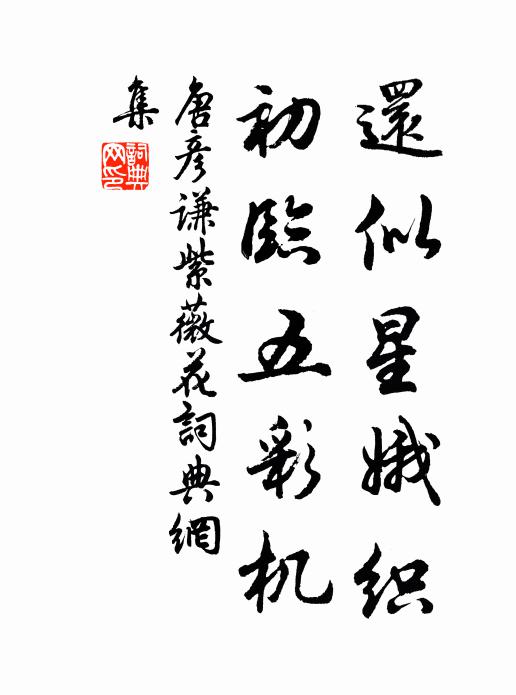 還似星娥织
初臨五彩机
唐彦谦紫薇花詞典網
集
詞典网印